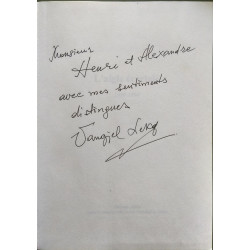 Monsieur
Henri et Alexandre
avec mes sentiments
distingues
Vangjel